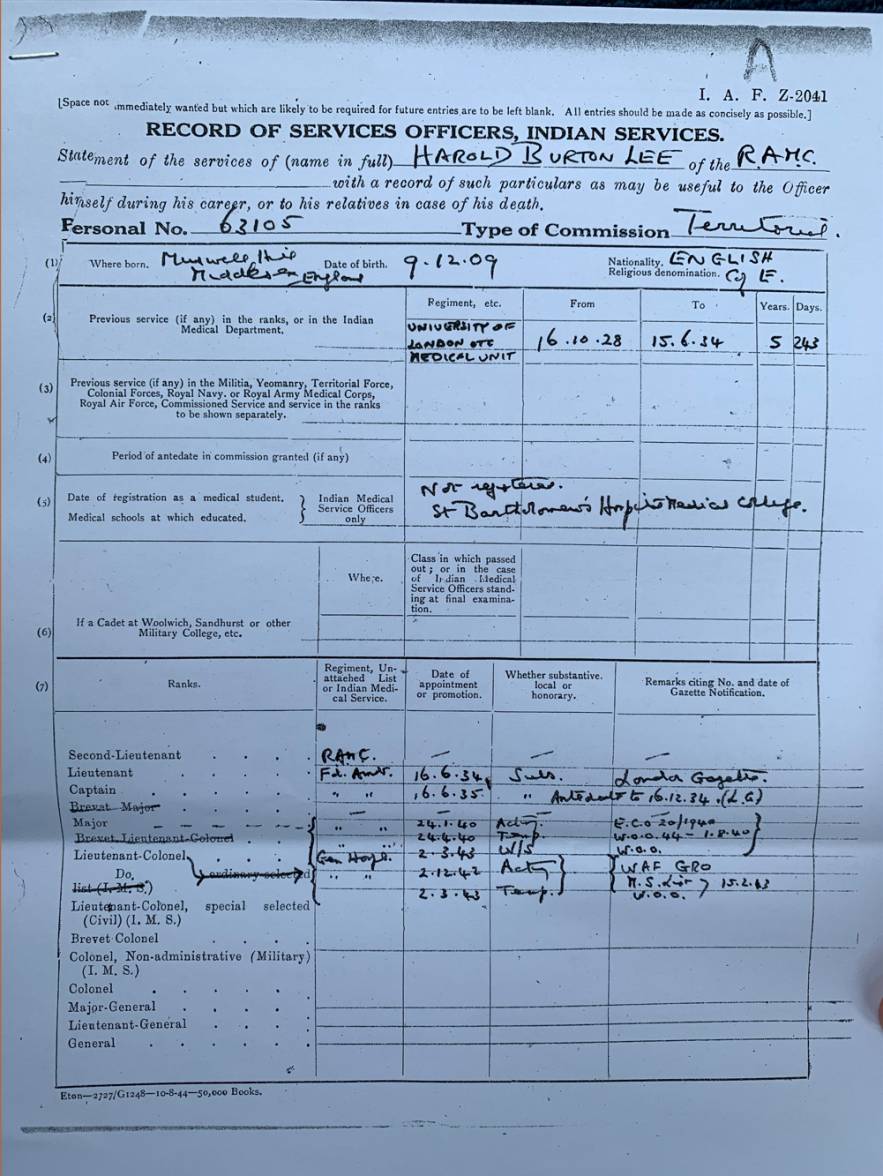 A
I. A. F. Z-2041
[Space not immediately wanted but which are likely to be required for future entries are to be left blank. All entries should be made as concisely as possible.]
RECORD OF SERVICES OFFICERS, INDIAN SERVICES.
Statement of the services of (name in full) HAROLD BURTON LEE of the R.A.M.C.
with a record of such particulars as may be useful to the Officer
himself during his career, or to his relatives in case of his death.
Personal No. 63105 Type of Commission Territorial.
(1) Where born. Muswell Hill Middlesex England Date of birth. 9.12.09 Nationality. ENGLISH
Religious denomination. C of E.
Regiment, etc. From To Years. Days.
(2) Previous service (if any) in the ranks, or in the Indian
Medical Department.
UNIVERSITY OF
LONDON OTC 16.10.28 15.6.34 5 243
MEDICAL UNIT
(3) Previous service (if any) in the Militia, Yeomanry, Territorial Force,
Colonial Forces, Royal Navy. or Royal Army Medical Corps,
Royal Air Force, Commissioned Service and service in the ranks
to be shown separately.
(4) Period of antedate in commission granted (if any)
(5) Date of registration as a medical student.
Medical schools at which educated.
Indian Medical
Service Officers
only
Not registered.
St Bartholomew's Hospital Medical College.
Where.
Class in which passed
out; or in the case
of Indian Medical
Service Officers stand-
ing at final examina-
tion.
(6) If a Cadet at Woolwich, Sandhurst or other
Military College, etc.
(7) Ranks.
Regiment, Un-
attached List
or Indian Medi-
cal Service.
Date of
appointment
or promotion.
Whether substantive.
local or
honorary.
Remarks citing No. and date of
Gazette Notification.
Second-Lieutenant . . . . RAMC. — — —
Lieutenant . . . . Fd. Amb. 16.6.34 Subs. London Gazette.
Captain . . . . " " 16.6.35 " Antedate to 16.12.34 (L.G)
Brevet Major — — —
Major " " 24.1.40 Actg E.C.O 20/1940
Brevet Lieutenant-Colonel " " 24.4.40 Temp. W.O.O. 44 - 1.8.40
Lieutenant-Colonel Gen Hosp. 2.3.43 W/S W.O.O.
Do. ordinary selected " " 2.12.42 Actg WAF GRO
list (I. M. S.) 15.2.43
2.3.43 Temp. W.O.O.
Lieutenant-Colonel, special selected
(Civil) (I. M. S.)
Brevet Colonel . . . .
Colonel, Non-administrative (Military)
(I. M. S.)
Colonel . . . . .
Major-General . . . .
Lieutenant-General . . . .
General . . . . .
Eton—2727/G1248—10-8-44—50,000 Books.